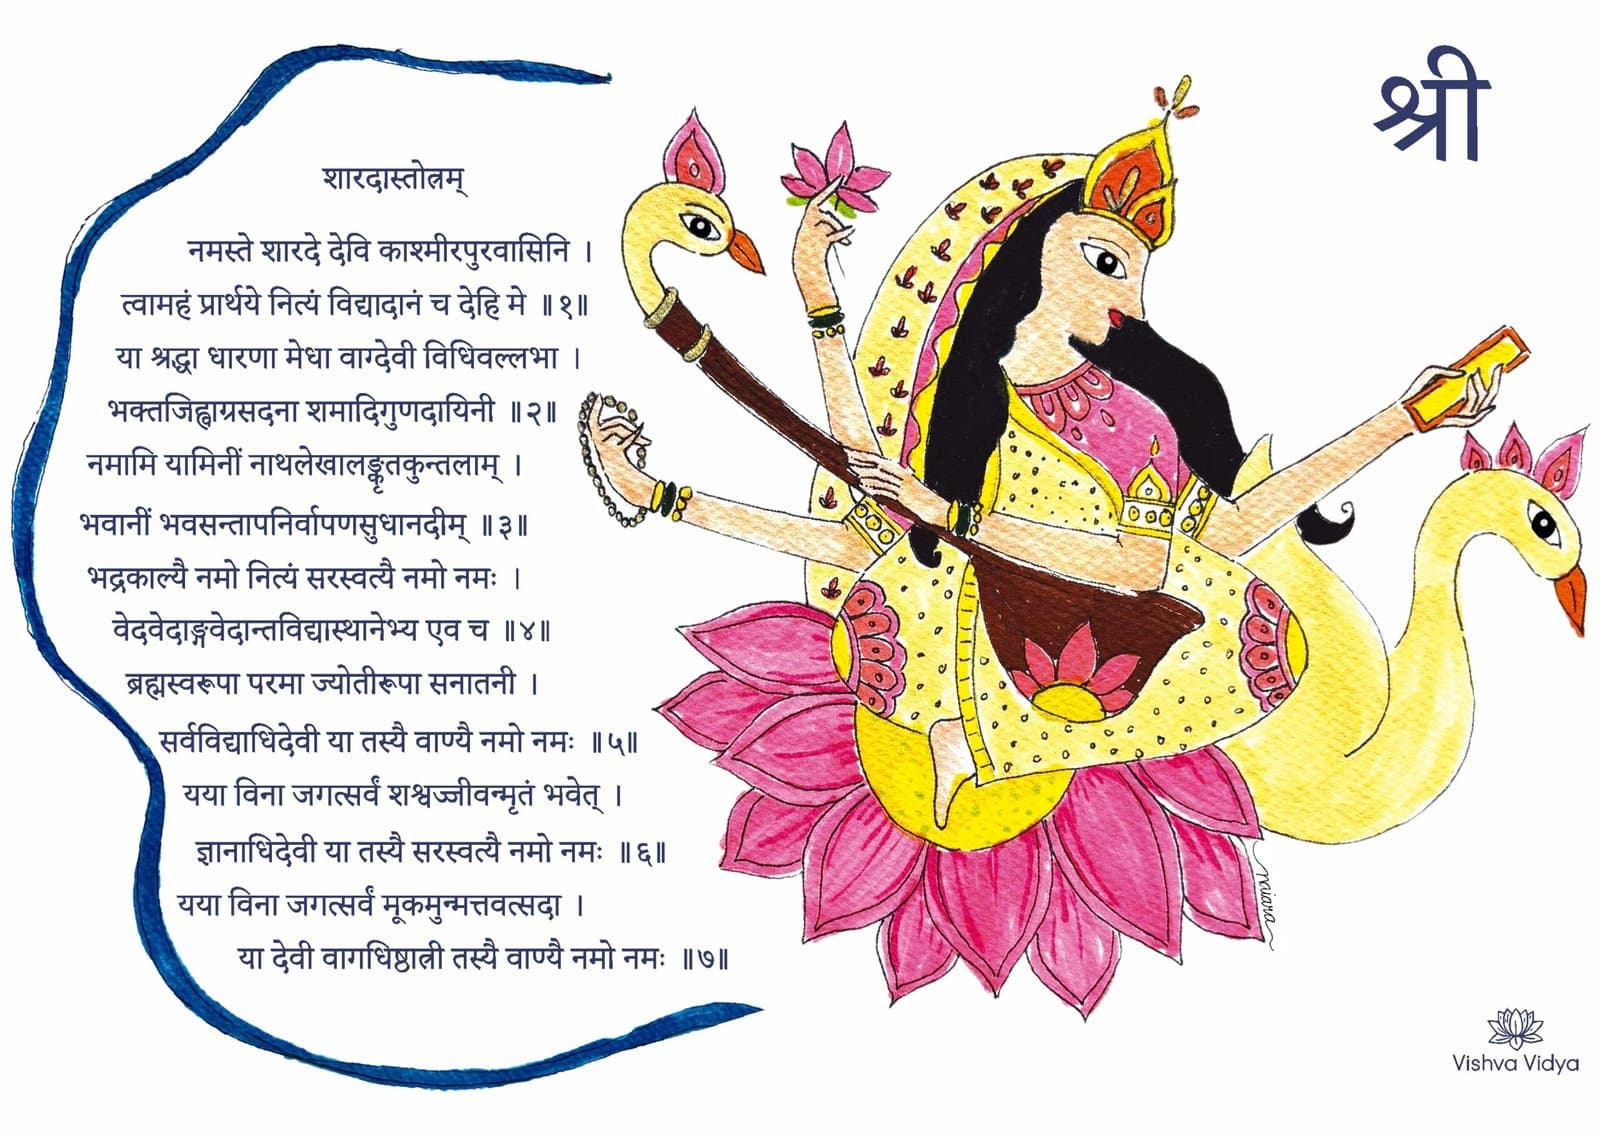 श्री
शारदास्तोत्रम्
नमस्ते शारदे देवि काश्मीरपुरवासिनि ।
त्वामहं प्रार्थये नित्यं विद्यादानं च देहि मे ॥१॥
या श्रद्धा धारणा मेधा वाग्देवी विधिवल्लभा ।
भक्तजिह्वाग्रसदना शमादिगुणदायिनी ॥२॥
नमामि यामिनीं नाथलेखालङ्कृतकुन्तलाम् ।
भवानीं भवसन्तापनिर्वापणसुधानदीम् ॥३॥
भद्रकाल्यै नमो नित्यं सरस्वत्यै नमो नमः ।
वेदवेदाङ्गवेदान्तविद्यास्थानेभ्य एव च ॥४॥
ब्रह्मस्वरूपा परमा ज्योतीरूपा सनातनी ।
सर्वविद्याधिदेवी या तस्यै वाण्यै नमो नमः ॥५॥
यया विना जगत्सर्वं शश्वज्जीवन्मृतं भवेत् ।
ज्ञानाधिदेवी या तस्यै सरस्वत्यै नमो नमः ॥६॥
यया विना जगत्सर्वं मूकमुन्मत्तवत्सदा ।
या देवी वागधिष्ठात्री तस्यै वाण्यै नमो नमः ॥७॥
raiana
Vishva Vidya